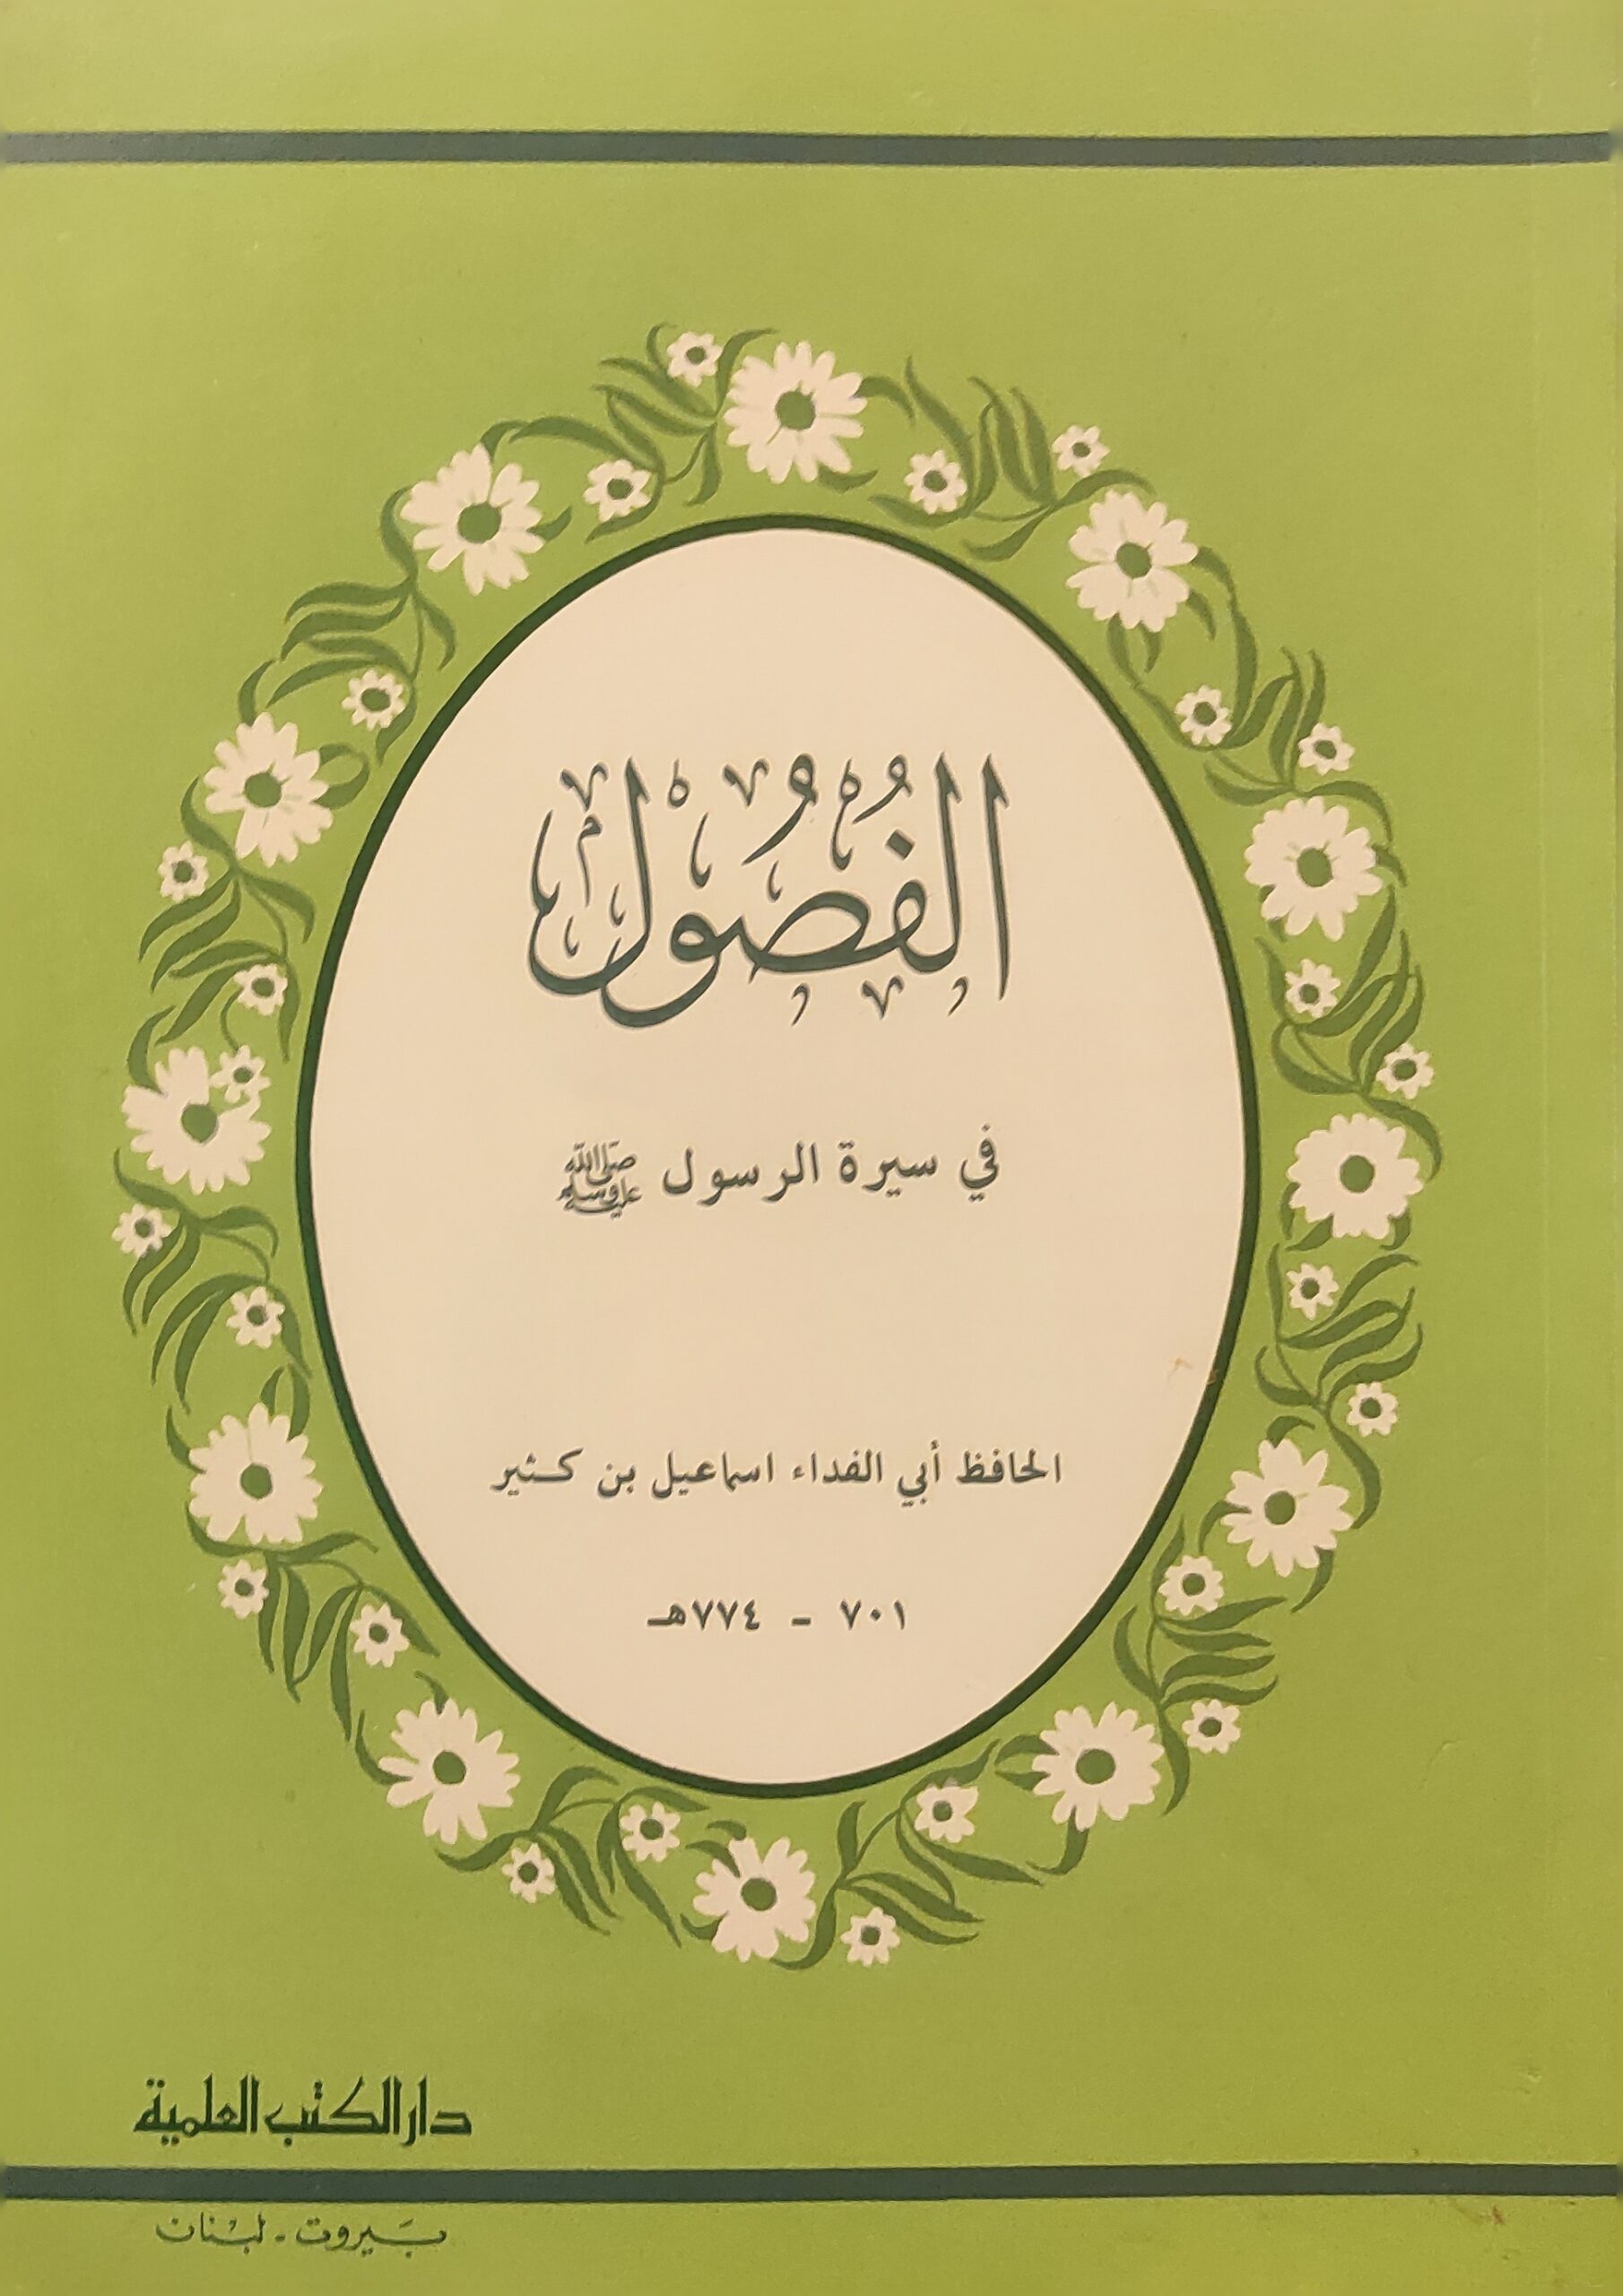 الفُصُول
في سيرة الرسول ﷺ
الحافظ أبي الفداء اسماعيل بن كثير
٧٠١ - ٧٧٤هـ
دار الكتب العلمية
بَيروت - لبْنان